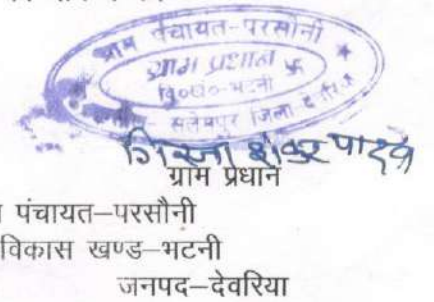 ग्राम पंचायत-परसौनी
ग्राम प्रधान
वि०ख०-भटनी
सलेमपुर जिला देवरिया
गिरजा शंकर
ग्राम प्रधान
पंचायत–परसौनी
विकास खण्ड–भटनी
जनपद–देवरिया